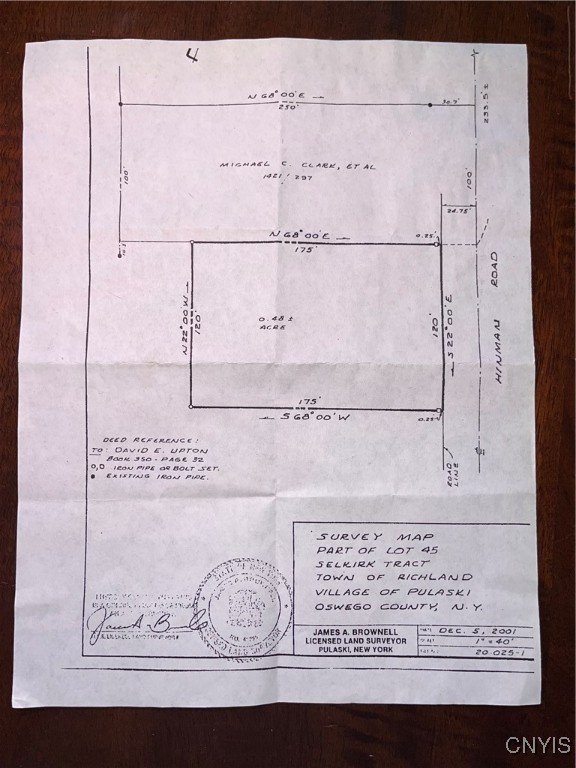 4
N 68° 00' E
250'
30.7'
233.5'±
100'
MICHAEL C. CLARK, ET AL
1421 / 297
100'
24.75'
N 68° 00' E
175'
0.25'
HINMAN ROAD
N 22° 00' W
120'
0.48 ±
ACRE
120'
S 22° 00' E
175'
S 68° 00' W
0.25'
ROAD
LINE
DEED REFERENCE:
TO: DAVID E. UPTON
BOOK 350 - PAGE 32
IRON PIPE OR BOLT SET.
EXISTING IRON PIPE.
SURVEY MAP
PART OF LOT 45
SELKIRK TRACT
TOWN OF RICHLAND
VILLAGE OF PULASKI
OSWEGO COUNTY, N.Y.
JAMES A. BROWNELL
LICENSED LAND SURVEYOR
PULASKI, NEW YORK
DEC. 5, 2001
1" = 40'
20-025-1
LAND SURVEYOR
CNYIS